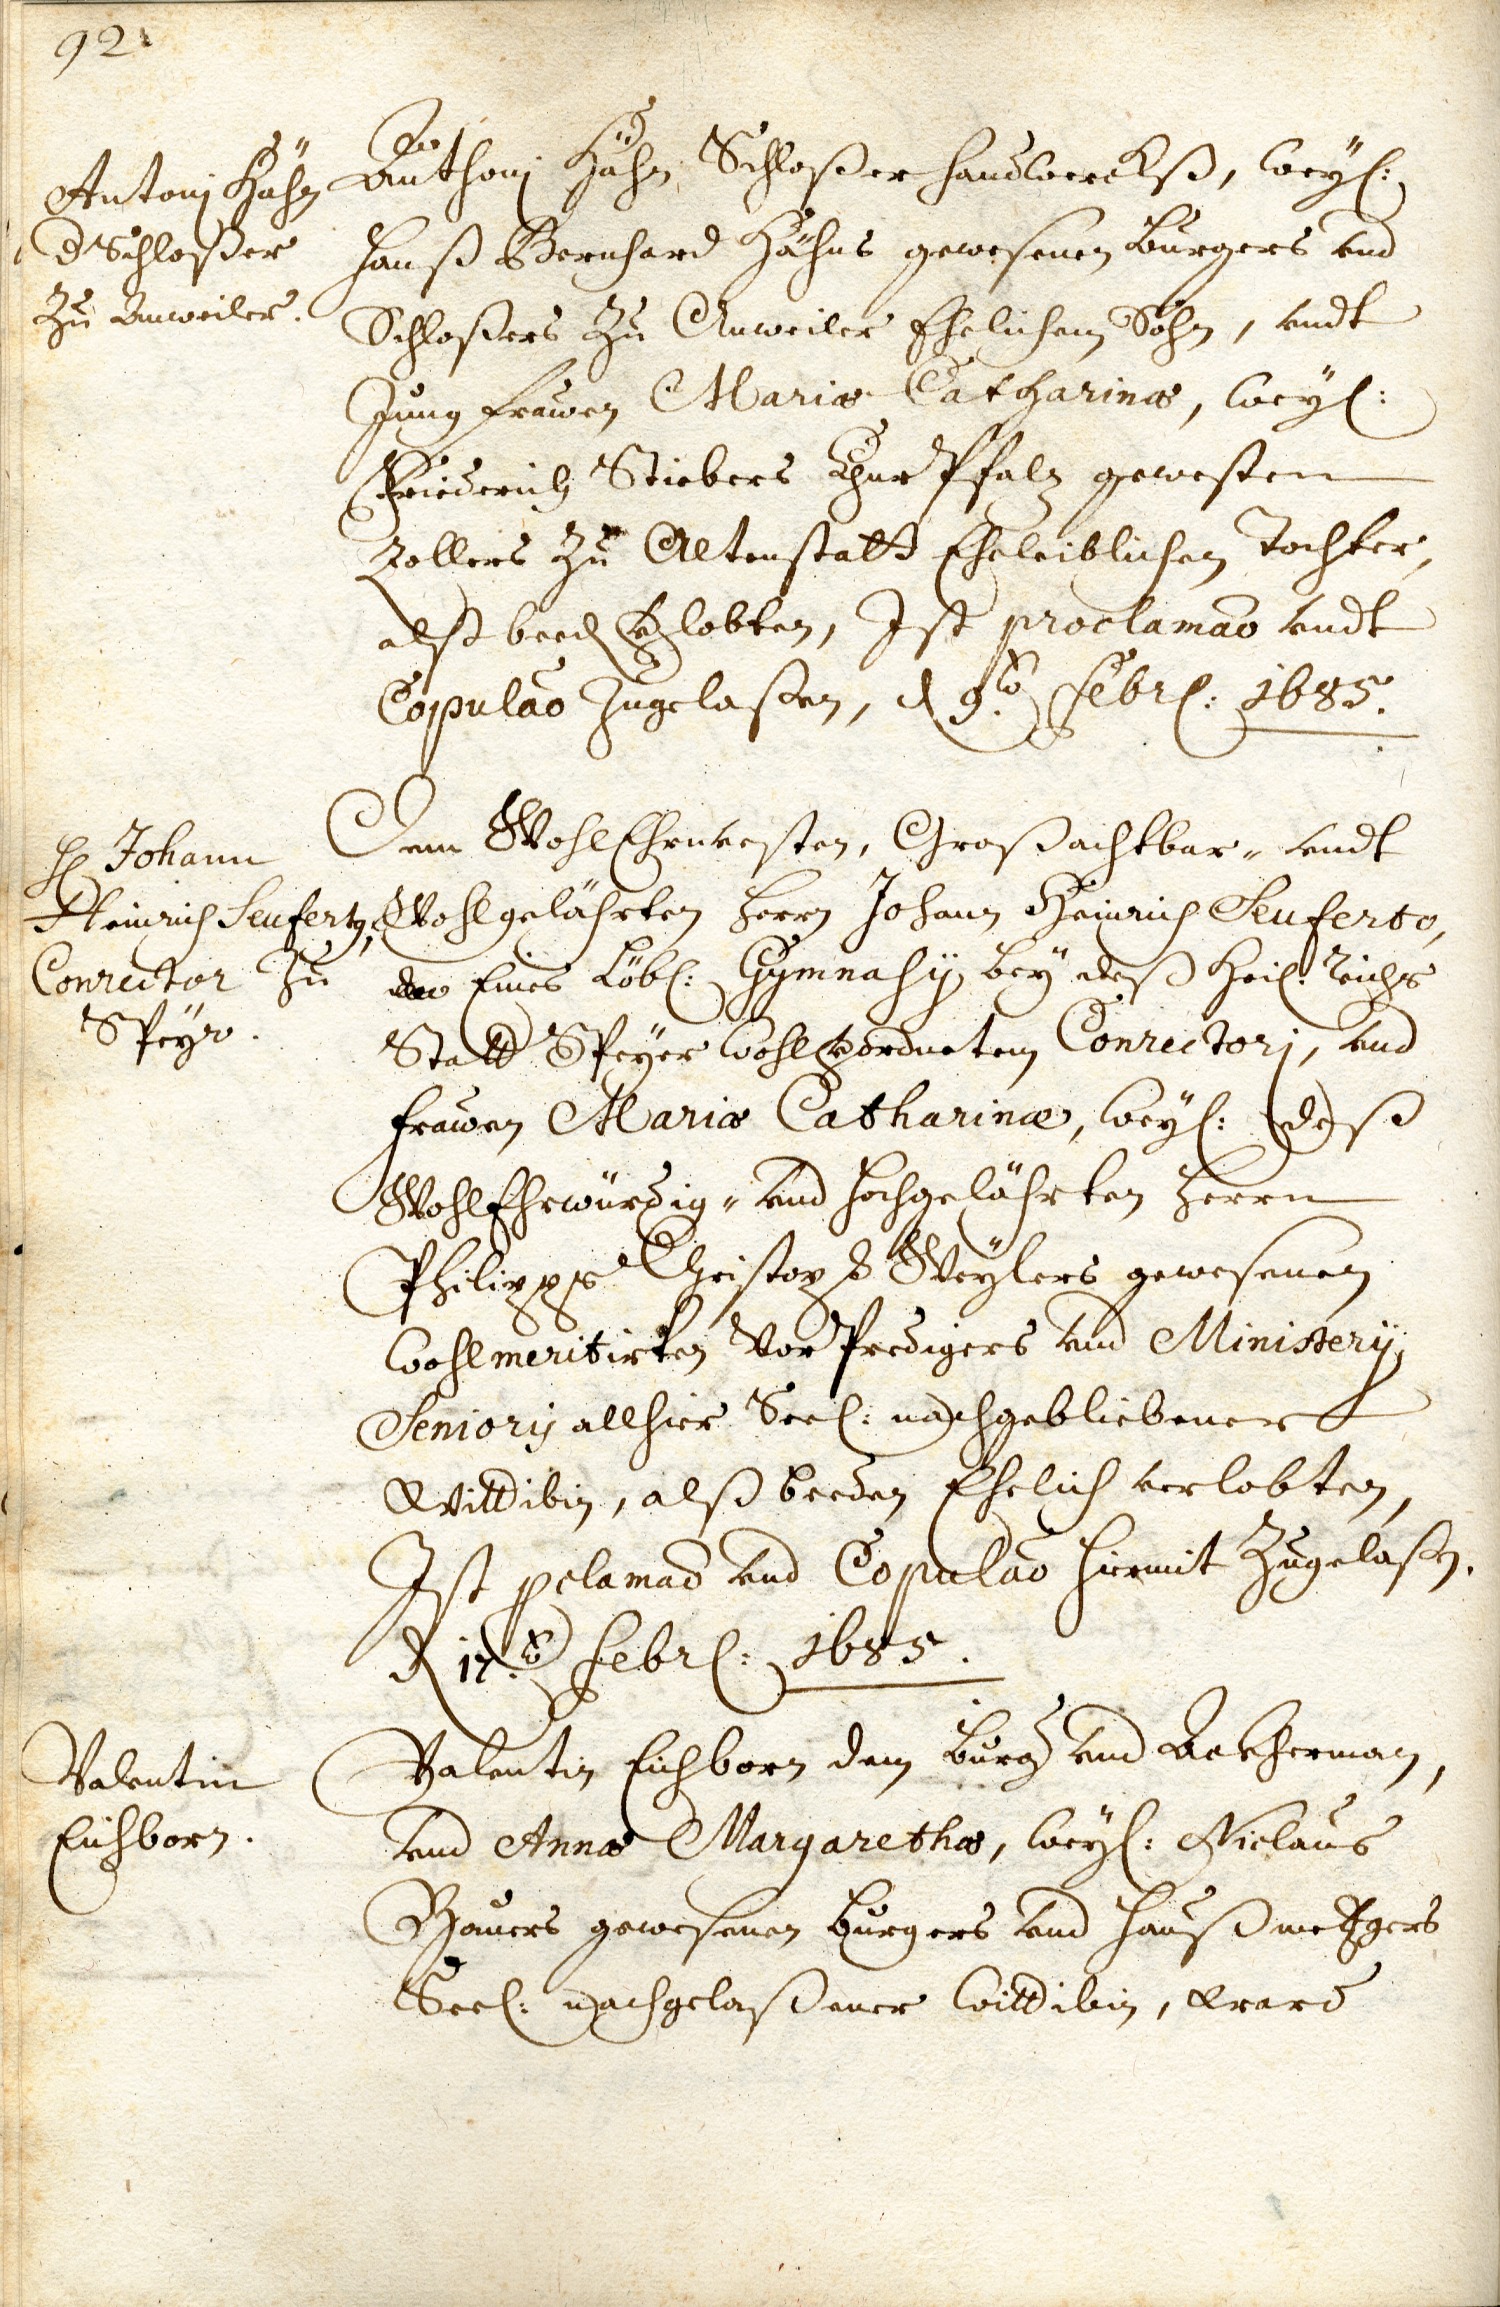 92
Antonj Hähn
d Schloßer
Zu Anweiler.
Anthonj Hähn, Schloßer handwercklß, weyl:
Hanß Bernhard Hähns gewesenen Burgers und
Schloßers Zu Anweiler Ehelichem Sohn, undt
Jungfrawen Mariæ Catharinæ, weyl:
Friederich Stiebers Chur Pfaltz gewesten
Zollers Zu Altenstatt Eheleiblichen Tochter,
alß beed Verlobten, Ist proclamao undt
Copulao Zugelaßen, d 9. Febrl: 1685.
H Johann
Heinrich Seufert,
Conrector Zu
Speyr.
Dem WohlEhrnvesten, Großachtbar- undt
Wohlgelährten Herrn Johann Heinrich Seuferto,
Eines Löbl: Gymnasij bey deß Heil: Reichs
Statt Speyer wohlverordnetem Conrectorj, und
Frawen Mariæ Catharinæ, weyl: deß
WohlEhrwürdig- und Hochgelährten Herrn
Philipps Christoph Weylers gewesenen
wohlmeritirten Vor Predigers und Ministerij
Seniorij allhier Seel: nachgebliebener
Wittibin, alß beeden Ehelich verlobten,
Ist pclamao und Copulao hiermit Zugelaßen.
d 17. Febrl: 1685.
Valentin
Eichborn.
Valentin Eichborn dem Burg und Ackherman,
und Annæ Margarethæ, weyl: Niclaus
Bauers gewesenen Burgers und Haußmetzgers
Seel: nachgelaßener Wittibin, ward